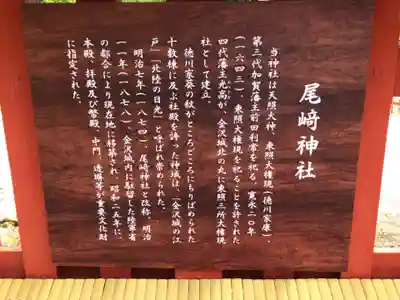 尾﨑神社
当神社は天照大神、東照大権現（徳川家康）、
第三代加賀藩主前田利常を祀る。寛永二〇年
（一六四三）、東照大権現を祀ることを許された
四代藩主光高が、金沢城北の丸に東照三所大権現
社として建立。
徳川家葵の紋がところどころにちりばめられた
十数棟に及ぶ社殿を誇った神域は、「金沢城の江
戸」「北陸の日光」と呼ばれ崇められた。
明治七年（一八七四）、尾﨑神社と改称。明治
一一年（一八七八）、金沢城内に駐留した陸軍省
の都合により現在地に移築され、昭和二五年に、
本殿、拝殿及び幣殿、中門、透塀等が重要文化財
に指定された。